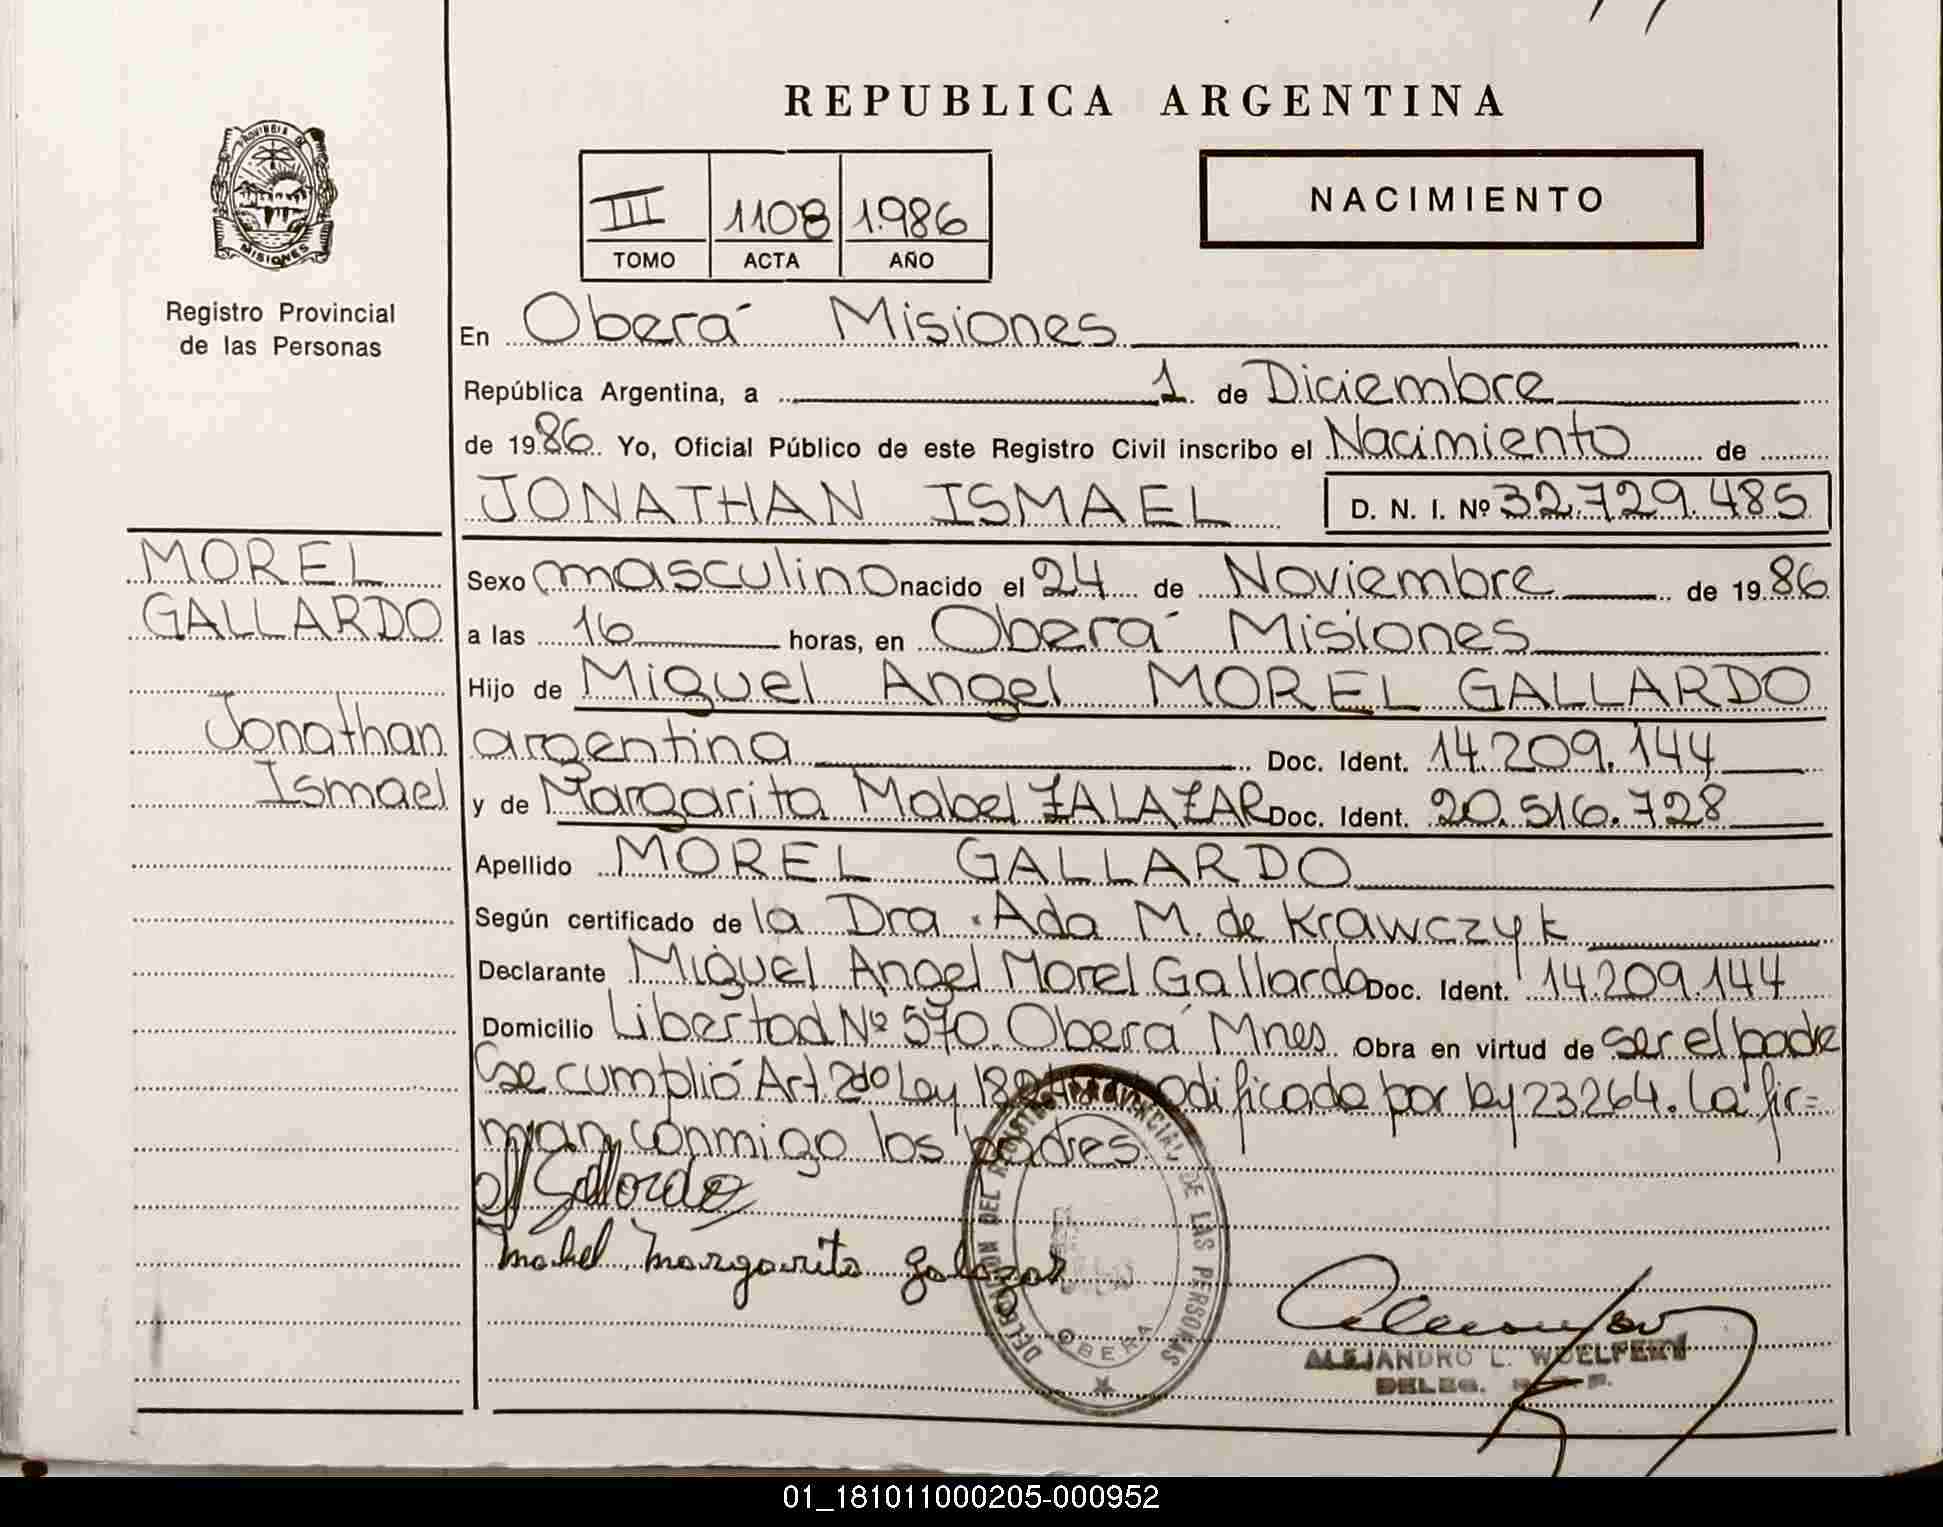 REPUBLICA ARGENTINA
PROVINCIA DE
MISIONES
Registro Provincial
de las Personas
III 1108 1.986
TOMO ACTA AÑO
NACIMIENTO
En Oberá Misiones
República Argentina, a 1 de Diciembre
de 1986 Yo, Oficial Público de este Registro Civil inscribo el Nacimiento de
JONATHAN ISMAEL D. N. I. Nº 32.729.485
MOREL
GALLARDO
Jonathan
Ismael
Sexo masculino nacido el 24 de Noviembre de 1986
a las 16 horas, en Oberá Misiones
Hijo de Miguel Angel MOREL GALLARDO
argentina Doc. Ident. 14.209.144
y de Margarita Mabel ZALAZAR Doc. Ident. 20.516.728
Apellido MOREL GALLARDO
Según certificado de la Dra. Ada M. de Krawczyk
Declarante Miguel Angel Morel Gallardo Doc. Ident. 14.209.144
Domicilio Libertad Nº 570 Oberá Mnes Obra en virtud de ser el padre
Se cumplió Art. 2do Ley modificada por ley 23264. La fir=
man conmigo los padres
Gallardo
Mabel Margarita Zalazar
DELEGACION DEL REGISTRO PROVINCIAL DE LAS PERSONAS
OBERA
ALEJANDRO L. 
DELEG.
01_181011000205-000952